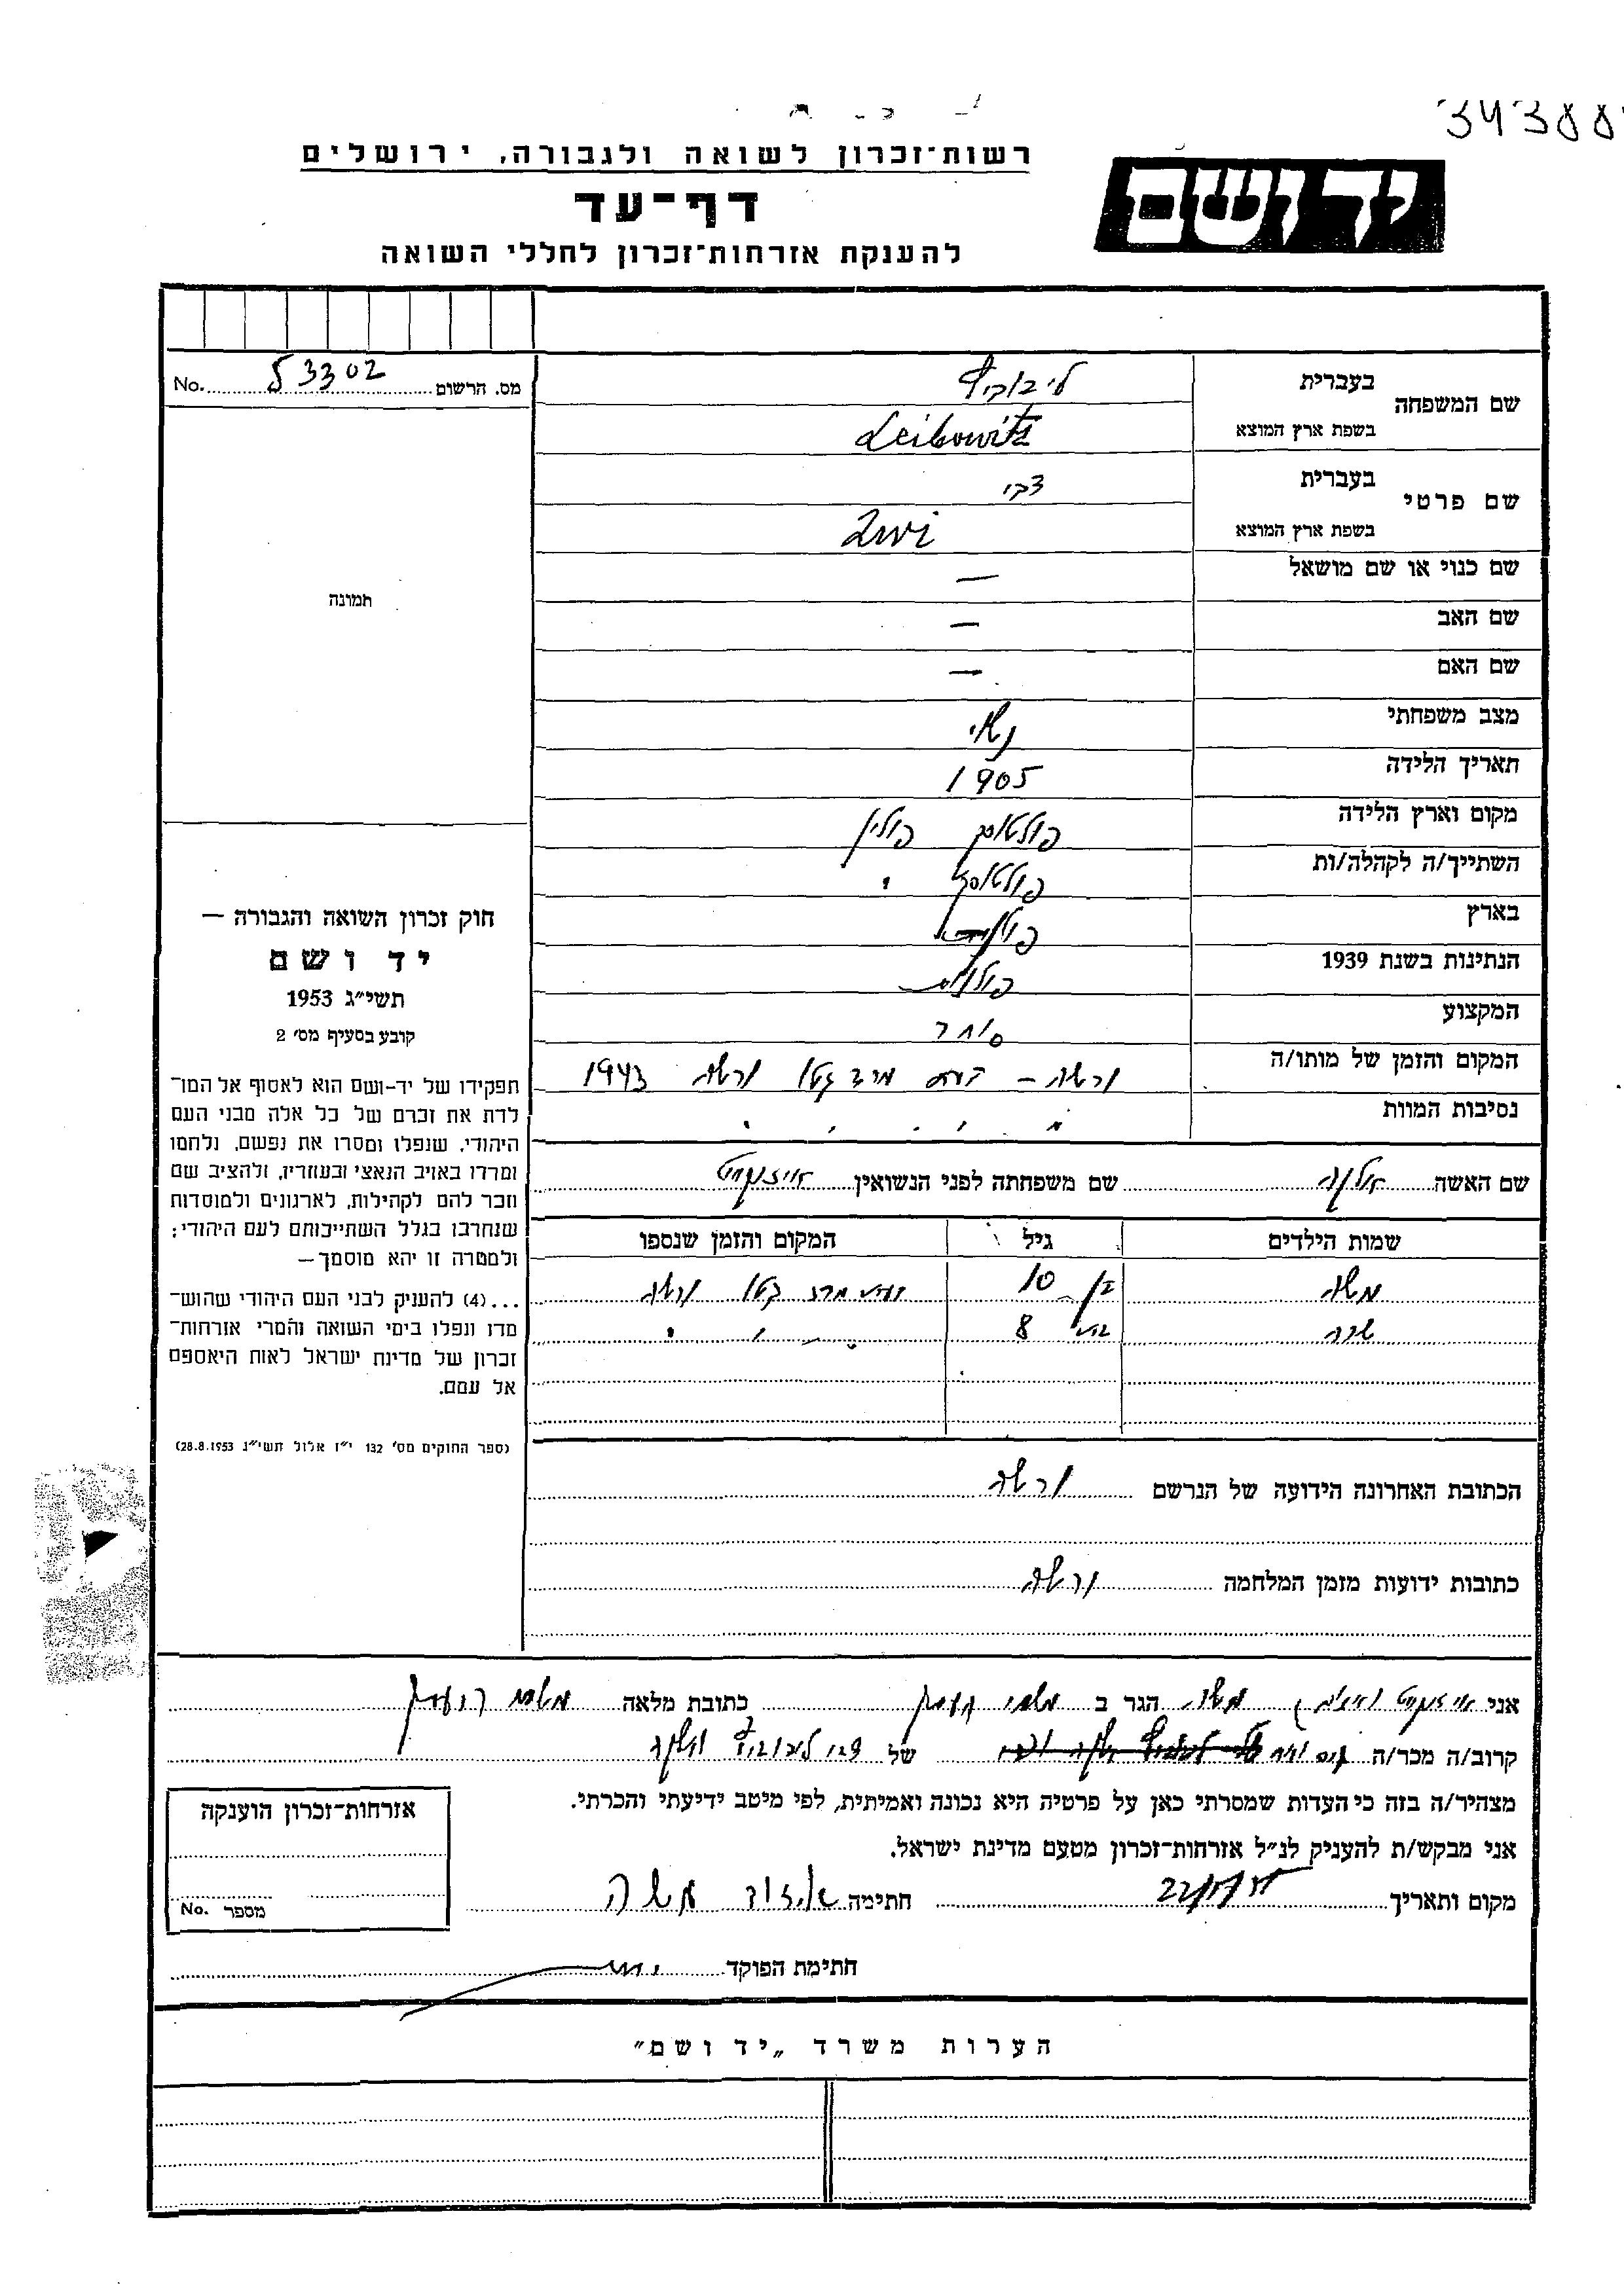 343887
רשות־זכרון לשואה ולגבורה, ירושלים
יד ושם
דף־עד
להענקת אזרחות־זכרון לחללי השואה
מס. הרשום 53302 No.
שם המשפחה
בעברית ליבוביץ
בשפת ארץ המוצא Leibowitz
שם פרטי
בעברית צבי
בשפת ארץ המוצא Zwi
שם כנוי או שם מושאל —
שם האב —
שם האם —
מצב משפחתי נשוי
תאריך הלידה 1905
מקום וארץ הלידה פולטוסק פולין
השתייך/ה לקהלה/ות פולטוסק
בארץ
הנתינות בשנת 1939 פולנית
המקצוע סוחר
המקום והזמן של מותו/ה ורשה – בעת מרד גטו ורשה 1943
נסיבות המוות " " " "
תמונה
חוק זכרון השואה והגבורה —
יד ושם
תשי״ג 1953
קובע בסעיף מס׳ 2
תפקידו של יד-ושם הוא לאסוף אל המו־
לדת את זכרם של כל אלה מבני העם
היהודי, שנפלו ומסרו את נפשם, נלחמו
ומרדו באויב הנאצי ובעוזריו, ולהציב שם
וזכר להם לקהילות, לארגונים ולמוסדות
שנחרבו בגלל השתייכותם לעם היהודי;
ולמטרה זו יהא מוסמך —
...(4) להעניק לבני העם היהודי שהוש־
מדו ונפלו בימי השואה והמרי אזרחות־
זכרון של מדינת ישראל לאות היאספם
אל עמם.
(ספר החוקים מס׳ 132 י״ז אלול תשי״ג 28.8.1953)
שם האשה שם משפחתה לפני הנשואין
שמות הילדים גיל המקום והזמן שנספו
משה בן 10 מרד גטו ורשה
שרה בת 8 " " "
הכתובת האחרונה הידועה של הנרשם ורשה
כתובות ידועות מזמן המלחמה ורשה
אני משה הגר ב כתובת מלאה
קרוב/ה מכר/ה של צבי ליבוביץ
מצהיר/ה בזה כי העדות שמסרתי כאן על פרטיה היא נכונה ואמיתית, לפי מיטב ידיעתי והכרתי.
אני מבקש/ת להעניק לנ״ל אזרחות־זכרון מטעם מדינת ישראל.
מקום ותאריך חתימה משה
חתימת הפוקד
אזרחות־זכרון הוענקה
מספר No.
הערות משרד „יד ושם״